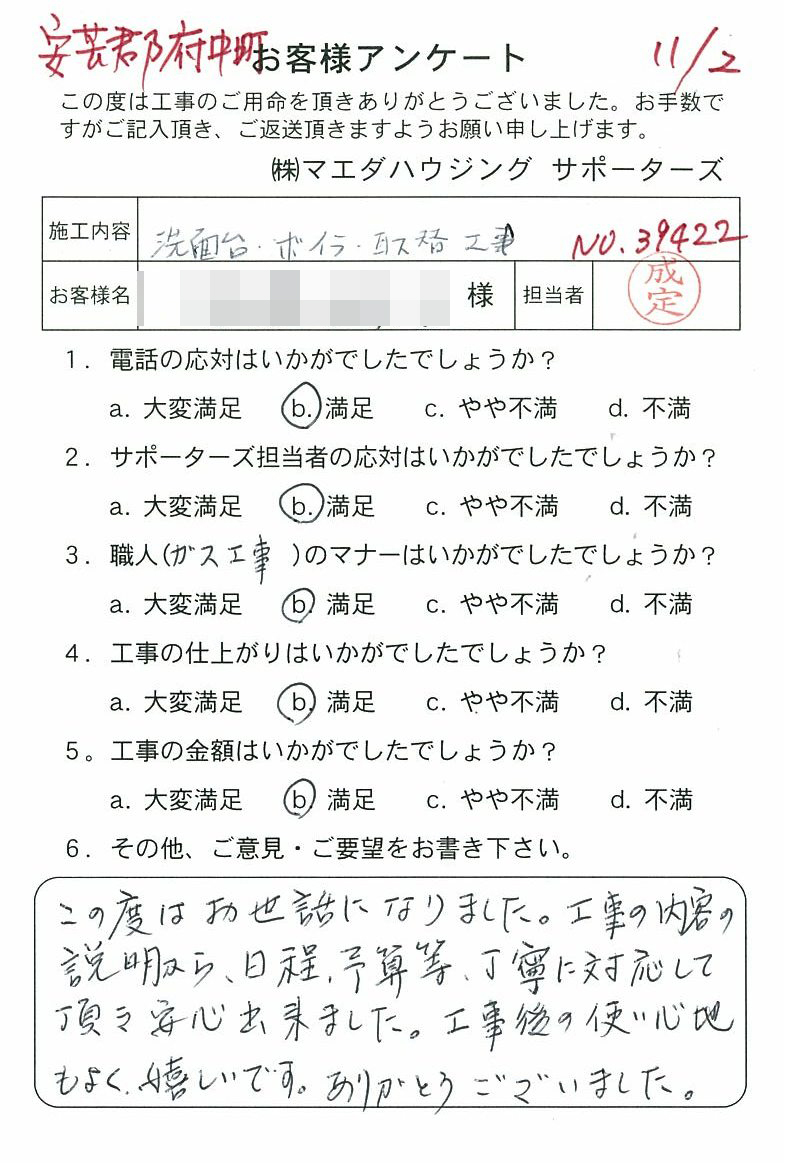 安芸郡府中町
お客様アンケート
11/2
この度は工事のご用命を頂きありがとうございました。お手数で
すがご記入頂き、ご返送頂きますようお願い申し上げます。
㈱マエダハウジング サポーターズ
施工内容 洗面台・ボイラ・取替工事 NO.39422
お客様名 様 担当者 成定
1. 電話の応対はいかがでしたでしょうか？
a. 大変満足 b. 満足 c. やや不満 d. 不満
2. サポーターズ担当者の応対はいかがでしたでしょうか？
a. 大変満足 b. 満足 c. やや不満 d. 不満
3. 職人(ガス工事 )のマナーはいかがでしたでしょうか？
a. 大変満足 b. 満足 c. やや不満 d. 不満
4. 工事の仕上がりはいかがでしたでしょうか？
a. 大変満足 b. 満足 c. やや不満 d. 不満
5。工事の金額はいかがでしたでしょうか？
a. 大変満足 b. 満足 c. やや不満 d. 不満
6. その他、ご意見・ご要望をお書き下さい。
この度はお世話になりました。工事の内容の
説明から、日程、予算等、丁寧に対応して
頂き安心出来ました。工事後の使い心地
もよく、嬉しいです。ありがとうございました。